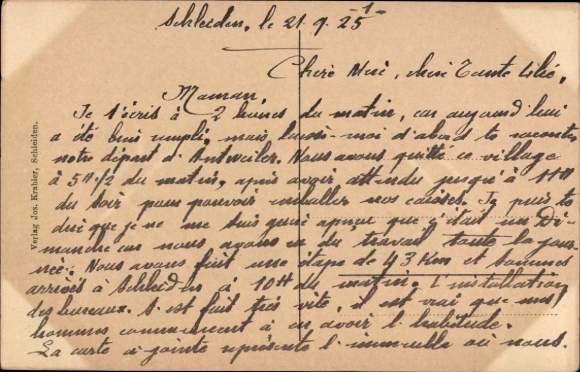 Schleiden, le 21.9.25
Chère Mimi, chère Tante Lilie,
Maman,
Je t'écris à 2 heures du matin, car aujourd'hui
a été bien rempli, mais laisse-moi d'abord te raconter
notre départ d'Antweiler. Nous avons quitté ce village
à 5H 1/2 du matin, après avoir attendu jusqu'à 11H
du soir pour pouvoir emballer nos caisses. Je puis te
dire que je ne me suis guère aperçu que c'était un Di-
manche car nous avons eu du travail toute la jour-
née. Nous avons fait une étape de 43 Km et sommes
arrivés à Schleiden à 10H du matin. L'installation
des bureaux s'est fait très vite, il est vrai que mes
hommes commencent à en avoir l'habitude.
La carte ci jointe représente l'immeuble où nous
Verlag Jos. Krahler, Schleiden.